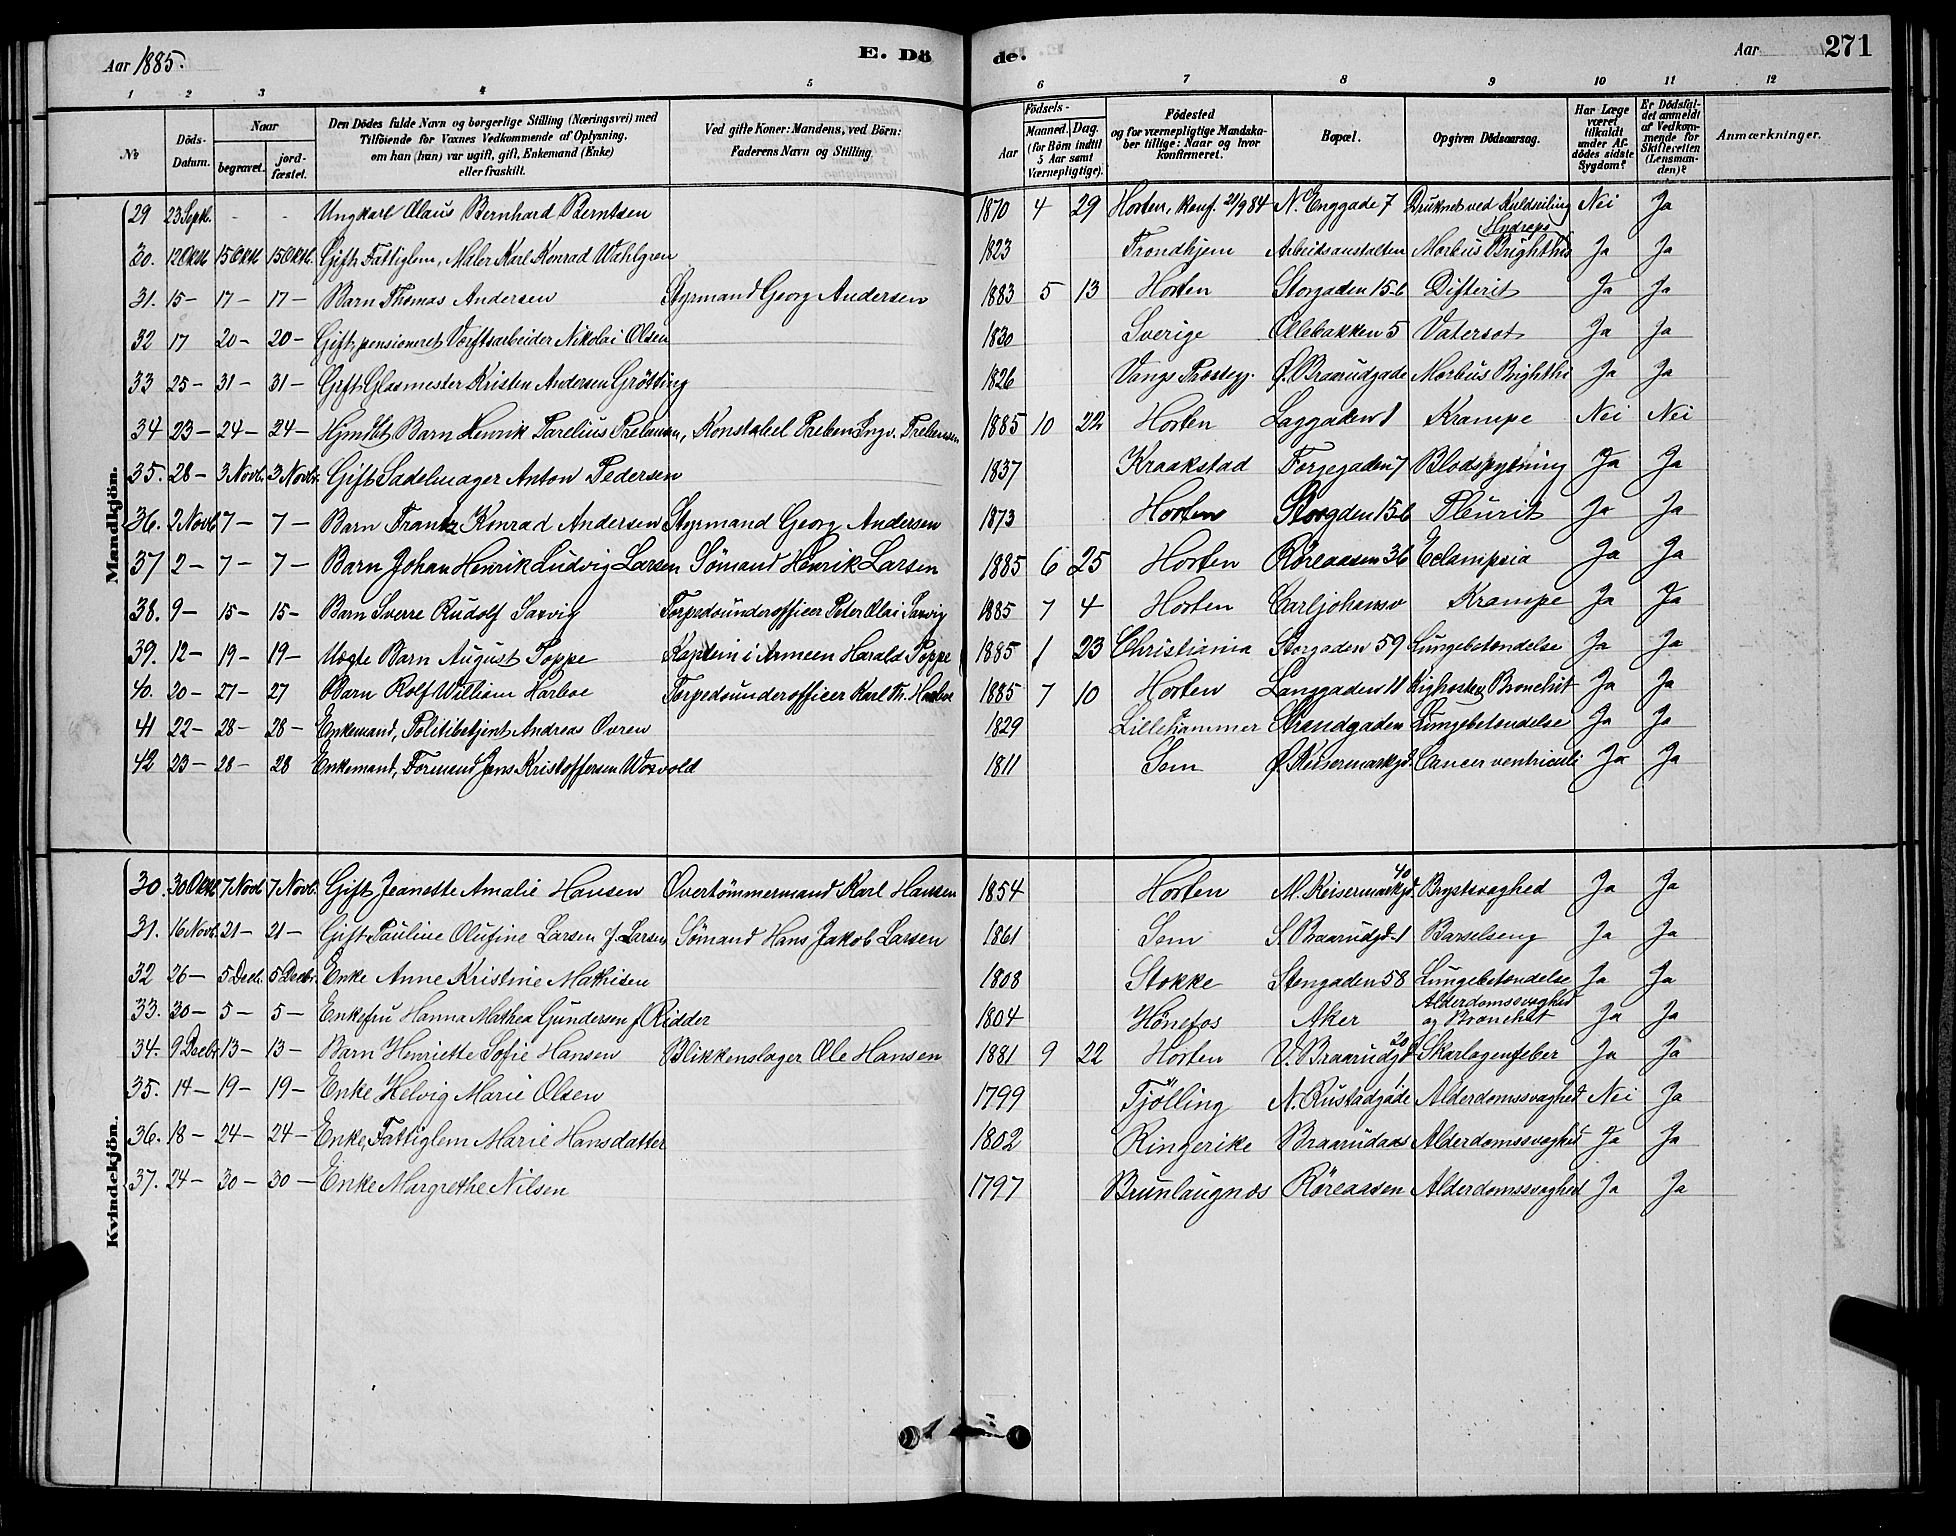 Aar 1885. E. Dö de. Aar 271
1 2 3 4 5 6 7 8 9 10 11 12
№ Döds-Datum. Naar begravet. jord-fæstet. Den Dödes fulde Navn og borgerlige Stilling (Næringsvei) med Tilföiende for Voxnes Vedkommende af Oplysning, om han (hun) var ugift, gift, Enkemand (Enke) eller fraskilt. Ved gifte Koner: Mandens, ved Börn: Faderens Navn og Stilling. Födsels- Aar Maaned. Dag. (for Börn indtil 5 Aar samt Værnepligtige). Födested og for værnepligtige Mandska-ber tillige: Naar og hvor konfirmeret. Bopæl. Opgiven Dödsaarsag. Har Læge været tilkaldt under Af-dödes sidste Sygdom? Er Dödsfal-det anmeldt af Vedkom-mende for Skifteretten (Lensman-den)? Anmærkninger.
Mandkjön.
29 23 Septb. - - Ungkarl Olaus Bernhard Berntsen 1870 4 29 Horten, konf. 21/9 84 N. Enggade 7 Druknet ved Kuldseiling Nei Ja
30. 12 Oktb. 15 Oktb. 15 Oktb. Gift Fattiglem, Maler Karl Konrad Wahlgren 1823 Trondhjem Arbeidsanstalten Morbus Brighthii Hydrops Ja Ja
31. 15 - 17 - 17 - Barn Thomas Andersen Styrmand Georg Andersen 1883 5 13 Horten Storgaden 15-b Difterit Ja Ja
32 17 20 - 20 - Gift pensioneret Værftsarbeider Nikolai Olsen 1830 Sverige Ollebakken 5 Vatersot Ja Ja
33 25 - 31 - 31 - Gift Glasmester Kristen Andersen Grötting 1826 Vangs Prestegj. Ø. Braarudgade Morbus Brighthi Ja Ja
34 23 - 24 - 24 - Hjmdbt Barn Henrik Parelius Prebensen, Konstabel Preben Ingv. Prebensen 1885 10 22 Horten Laggaden 1 Krampe Nei Nei
35. 28 - 3 Novb. 3 Novbr. Gift Sadelmager Anton Pedersen 1837 Kraakstad Torgegaden 7 Blodspytning Ja Ja
36. 2 Novb. 7 - 7 - Barn Frantz Konrad Andersen Styrmand Georg Andersen 1873 Horten Storgden 15-b Pleurit Ja Ja
37 2 - 7 - 7 - Barn Johan Henrik Ludvig Larsen Sömand Henrik Larsen 1885 6 25 Horten Röreaasen 36 Eclampsia Ja Ja
38. 9 - 15 - 15 - Barn Sverre Rudolf Sarvig Torpedounderofficer Peter Olai Sarvig 1885 7 4 Horten Carljohansv Krampe Ja Ja
39. 12 - 19 - 19 - Uægte Barn August Poppe Kaptein i Armeen Harald Poppe 1885 1 23 Christiania Storgaden 59 Lungebetendelse Ja Ja
40. 20 - 27 - 27 Barn Rolf William Harboe Torpedounderofficer Karl Th. Harboe 1885 7 10 Horten Langgaden 11 Kighoste, Bronchit Ja Ja
41 22 - 28 - 28 - Enkemand, Politibetjent Andreas Ovren 1829 Lillehammer Strandgaden Lungebetendelse Ja Ja
42 23 - 28 - 28 Enkemand, Formand Jens Kristoffersen Worvold 1811 Sem Ø. Keisermarkgd. Cancer ventriculi Ja Ja
Kvindekjön.
30. 30 Oktb. 7 Novb. 7 Novb. Gift Jeanette Amalie Hansen Overtömmermand Karl Hansen 1854 Horten M. Keisermarkgd. 40 Brystsvaghed Ja Ja
31. 16 Novb. 21 - 21 - Gift Pauline Olufine Larsen f. Larsen Sömand Hans Jakob Larsen 1861 Sem S. Braarudgd. 1 Barselseng Ja Ja
32 26 - 5 Decb. 5 Decbr. Enke Anne Kristine Mathisen 1808 Stokke Storgaden 58 Lungebetendelse Ja Ja
33. 30 - 5 - 5 - Enkefru Hanna Mathea Gundersen f Ridder 1804 Hönefos Aker Alderdomssvaghed og Bronchit Ja Ja
34. 9 Decbr 13 - 13 - Barn Henriette Sofie Hansen Blikkenslager Ole Hansen 1881 9 22 Horten V. Braarudgd 20 Skarlagensfeber Ja Ja
35. 14 - 19 - 19 - Enke Helvig Marie Olsen 1799 Tjölling N. Rustadgade 1 Alderdomssvaghed Nei Ja
36. 18 - 24 - 24 - Enke, Fattiglem Marie Hansdatter 1802 Ringerike Braarudaas Alderdomssvaghed Ja Ja
37. 24 - 30 - 30 - Enke Margrethe Nilsen 1797 Brunlaugnæs Röreaasen Alderdomssvaghed Ja Ja